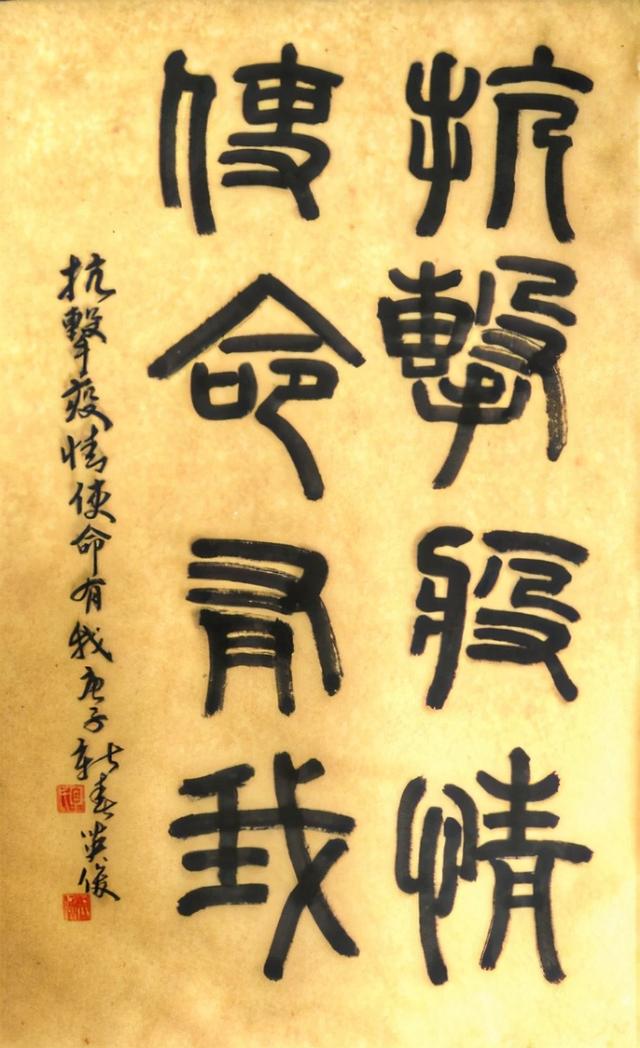 抗擊疫情
使命有我
抗擊疫情使命有我庚子新春英俊